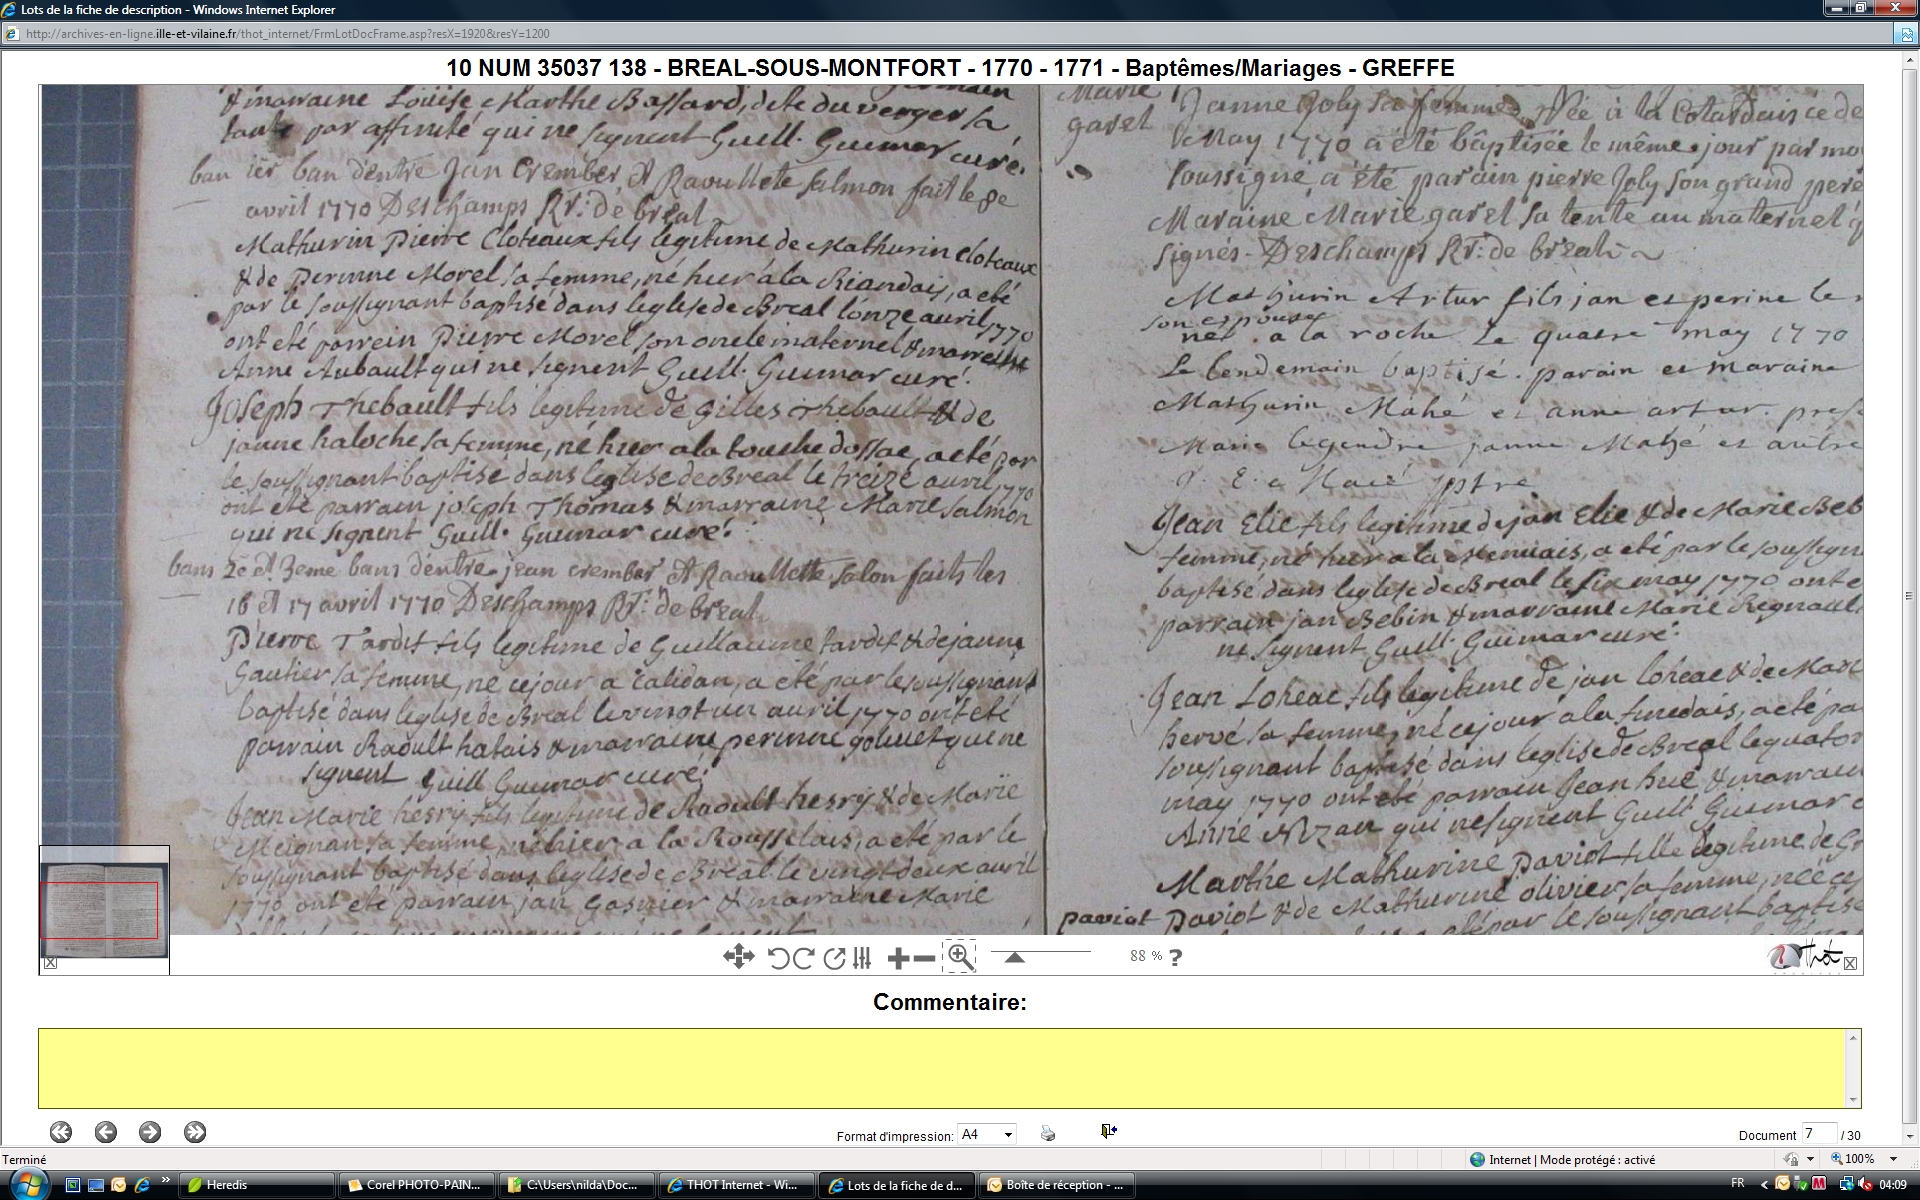 Lots de la fiche de description - Windows Internet Explorer
http://archives-en-ligne.ille-et-vilaine.fr/thot_internet/FrmLotDocFrame.asp?resX=1920&resY=1200
10 NUM 35037 138 - BREAL-SOUS-MONTFORT - 1770 - 1771 - Baptêmes/Mariages - GREFFE
& maraine Loüise Marthe Bassard, dite du verger sa
tante par affinité qui ne signent Guill. Guimar curé.
ban 1er ban dentre Jan Crember & Raoullete Salmon fait le 8e
avril 1770 Deschamps Rr. de breal
Mathurin Pierre Cloteaux fils legitime de Mathurin Cloteaux
& de perinne Morel sa femme, né hier à la Riandais, a eté
par le soussignant baptisé dans leglise de Breal lonze avril 1770
ont été parrein Pierre Morel son oncle maternel & marreine
Anne Aubault qui ne signent Guill. Guimar curé.
Joseph Thebault fils legitime de Gilles Thebault & de
janne haloche sa femme, né hier a la touche dossac, a eté par
le soussignant baptisé dans leglise de Breal le treize avril 1770
ont été parrain joseph Thomas & marraine Marie Salmon
qui ne signent Guill. Guimar curé.
bans 2e et 3eme bans dentre jean crember et Raoullette Salon faits les
16 et 17 avril 1770 Deschamps Rr. de breal
Pierre Tardif fils legitime de Guillaume tardif & de janne
Gautier sa femme, né cejour a Calidan, a eté par le soussignant
baptisé dans leglise de Breal le vingt un avril 1770 ont eté
parrain Raoult halais & marraine perinne qui ne
signent Guill Guimar curé.
Jean Marie hesry fils legitime de Raoult hesry & de Marie
Meignan sa femme, né hier a la Rousselais, a eté par le
soussignant baptisé dans leglise de Breal le vingt deux avril
1770 ont eté parrain jan Gasnier & marraine Marie
Marie
garel
Janne Joly sa femme. Née à la Cotardais ce
May 1770 a été bâptisée le même jour par moy
soussigné, a été parain pierre Joly son grand pere
Maraine Marie garel sa tente au maternel
signés. Deschamps Rr. de breal
Mathurin Artur fils jan et perine le
son espouse
net. a la roche Le quatre may 1770
Le lendemain baptisé. parain et maraine
Mathurin Mahé et anne artur.
Marie legendre janne Mahé et autre
Jean Elie fils legitime de jan Elie & de Marie Beb
femme, né hier a la Menuais, a eté par le soussign
baptisé dans leglise de Breal le six may 1770 ont e
parrain jan Bebin & marraine Marie Regnaul
ne signent Guill. Guimar curé.
Jean Loheac fils legitime de jan loheac & de Mar
hervé sa femme, né cejour a la , a eté pa
soussignant baptisé dans leglise de Breal le quator
may 1770 ont eté parrain Jean hué & marrain
Anne qui ne signent Guill Guimar c
Marthe Mathurine Daviot fille legitime de
paviot Daviot & de Mathurine olivier sa femme, née ce
eté par le soussignant baptisé
88 %
?
Thot
Commentaire:
Format d'impression: A4
Document 7 / 30
Terminé
Internet | Mode protégé : activé
100%
Heredis
Corel PHOTO-PAIN...
C:\Users\nilda\Doc...
THOT Internet - Wi...
Lots de la fiche de d...
Boîte de réception - ...
FR
04:09